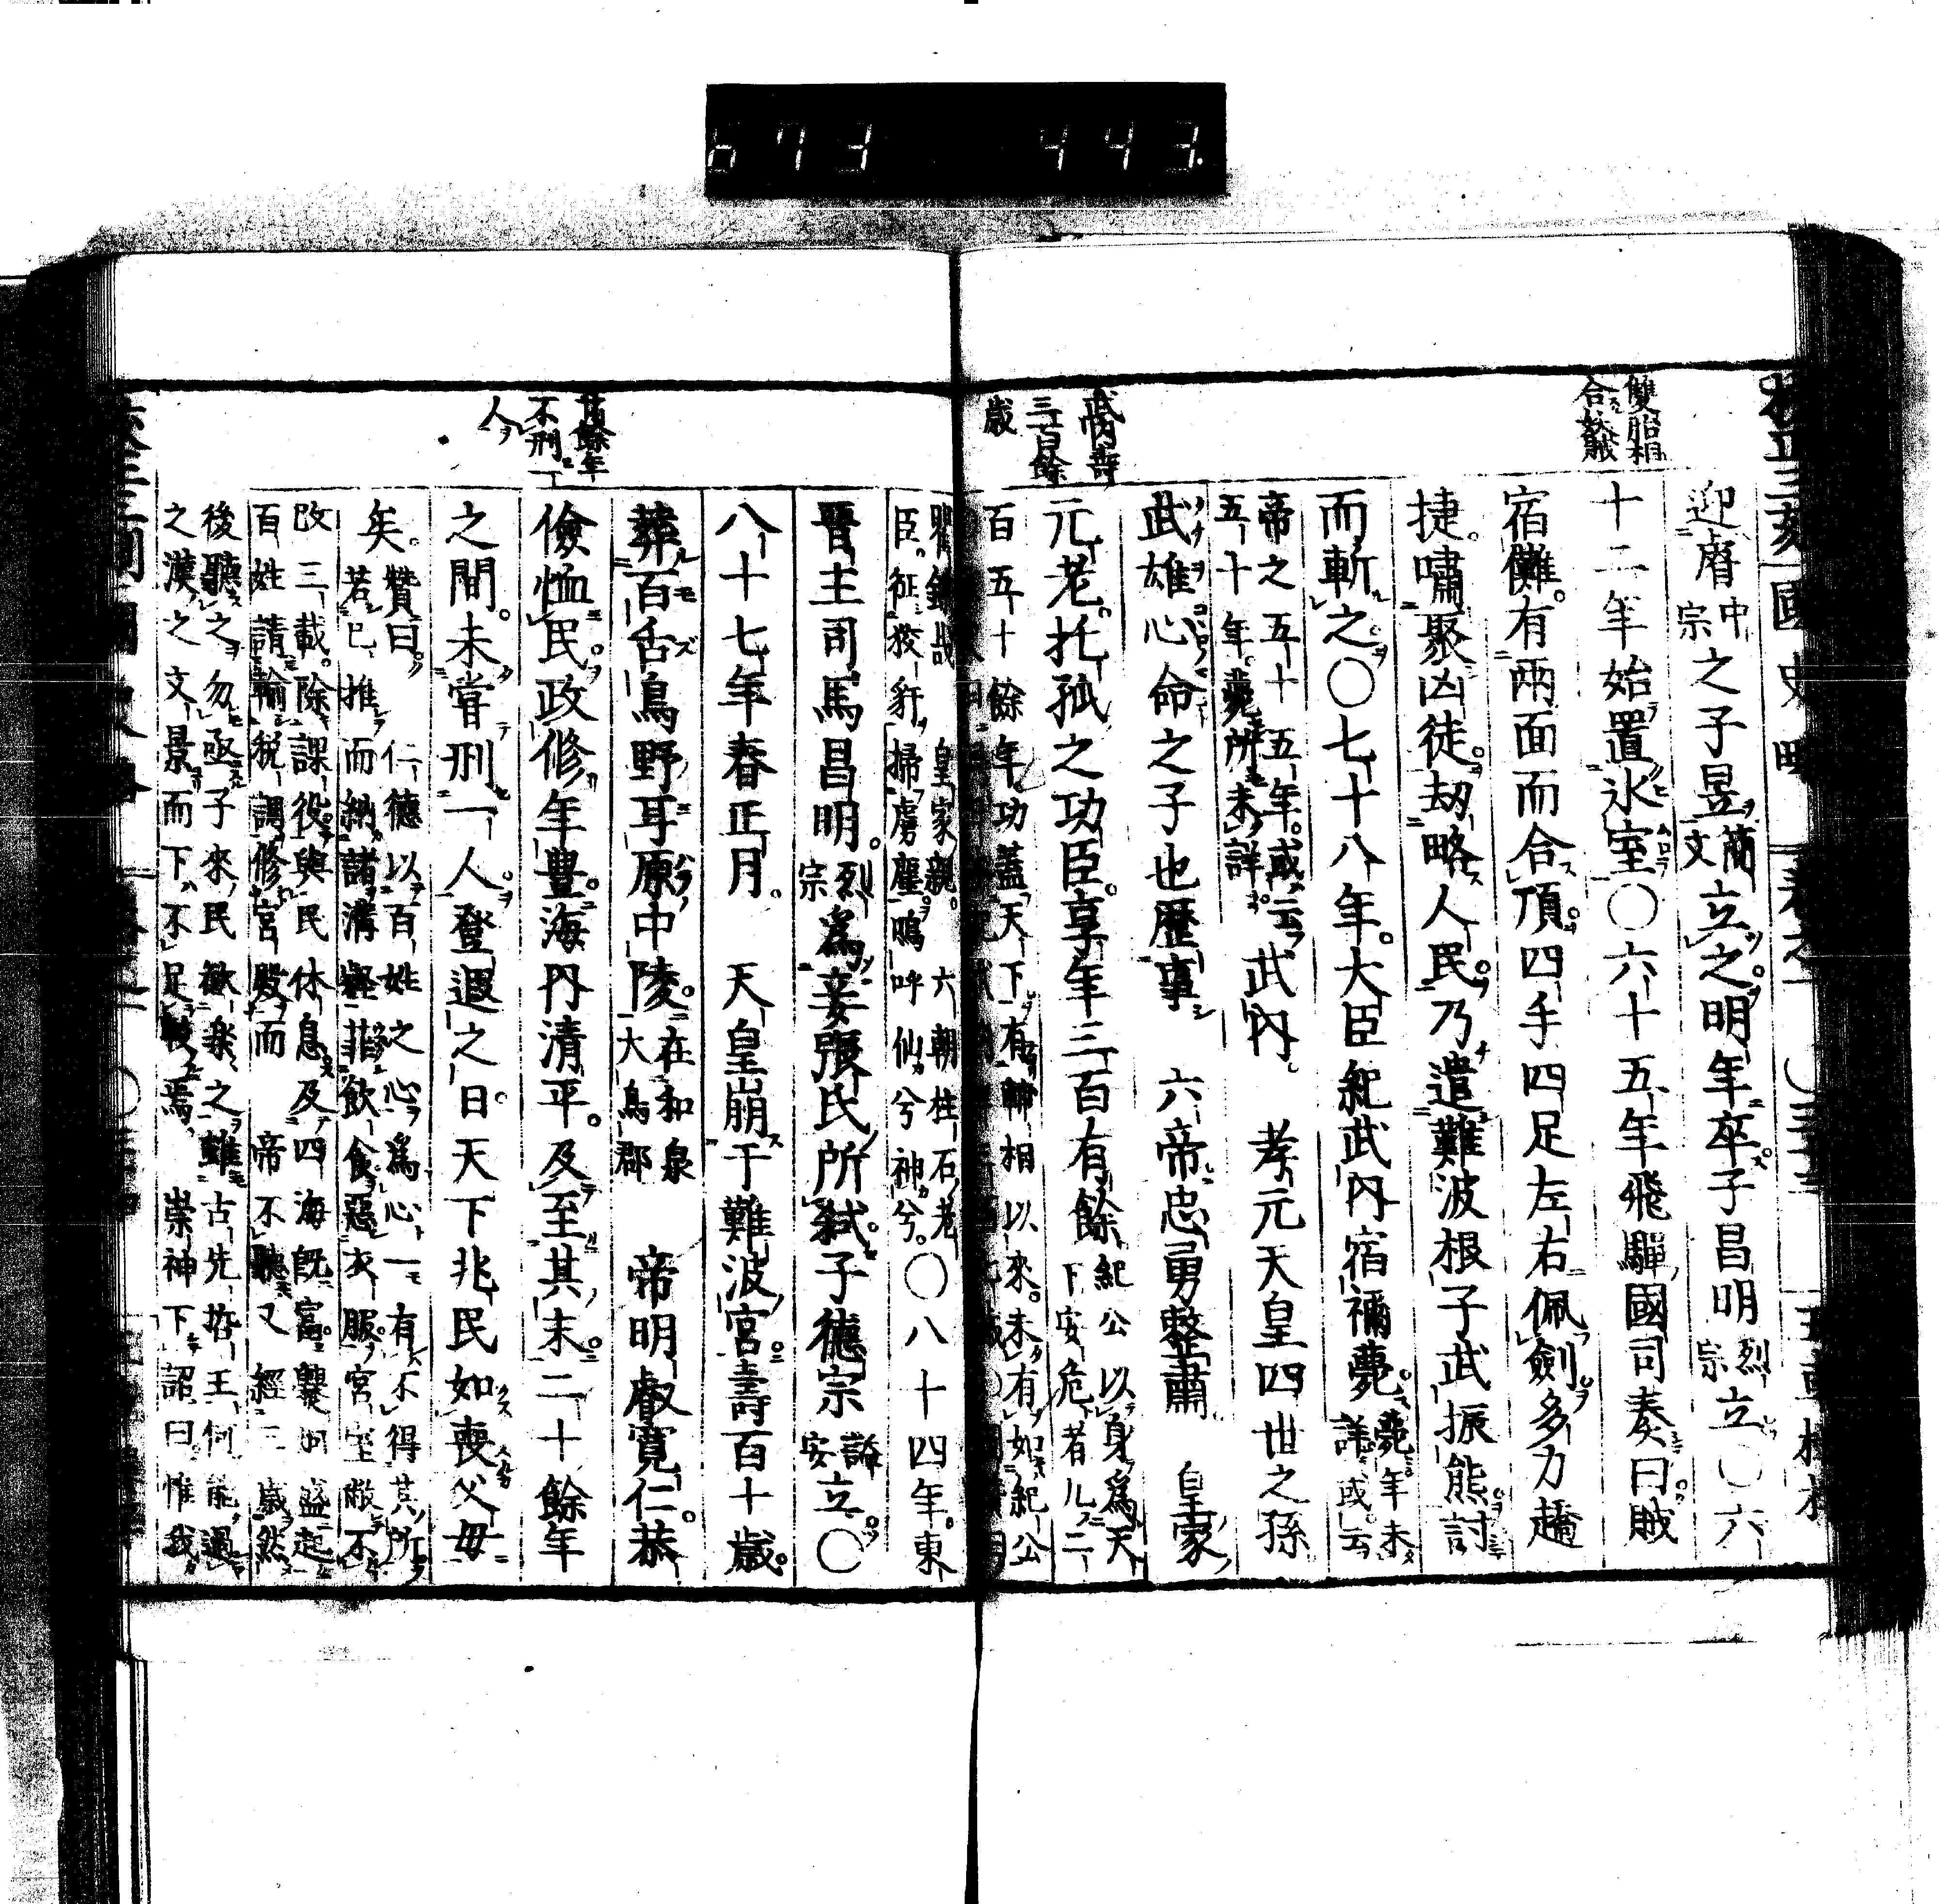 673 443.
雙胎相
合為賊
國史略
迎㫺中宗之子昱簡文立之明年卒子昌明烈宗立〇六
十二年始置氷室〇六十五年飛驒國司奏曰賊
宿儺有兩面而合頂四手四足左右佩劍多力趫
捷嘯聚凶徒劫略人民乃遣難波根子武振熊討
而斬之〇七十八年大臣紀武内宿禰薨薨年未詳或云
帝之五十五年或云五十年薨所未詳武内 孝元天皇四世之孫
武雄心命之子也歷事 六帝忠勇整肅 皇家
元老托孤之功臣享年三百有餘紀公以身為天下安危者凡二
武内壽
三百餘
歲
百五十餘年功蓋天下有 相以來未有如紀公
臣征狡 掃虜塵嗚呼仙兮神兮 皇家親 六朝柱石老〇八十四年東
晉主司馬昌明烈宗為妾張氏所弑子德宗 安立〇
八十七年春正月 天皇崩于難波宮壽百十歲
葬百舌鳥野耳原中陵在和泉大鳥郡 帝明叡寬仁恭
儉恤民政修年豊海内清平及至其末二十餘年
廿餘年
不刑一
人
之間未嘗刑一人登遐之日天下兆民如喪父母
矣贊曰 仁德以百姓之心為心一有不得其所
若已推而納諸溝 菲飲食惡衣服宮室敝不
改三載除課役與民休息及四海既富 盛起
百姓請輸稅調修宮殿而 帝不聽又經三歲然
後聽之勿亟子來民歡樂之雖古先哲王何能過
之漢之文景而下不足 焉 崇神下詔曰惟我